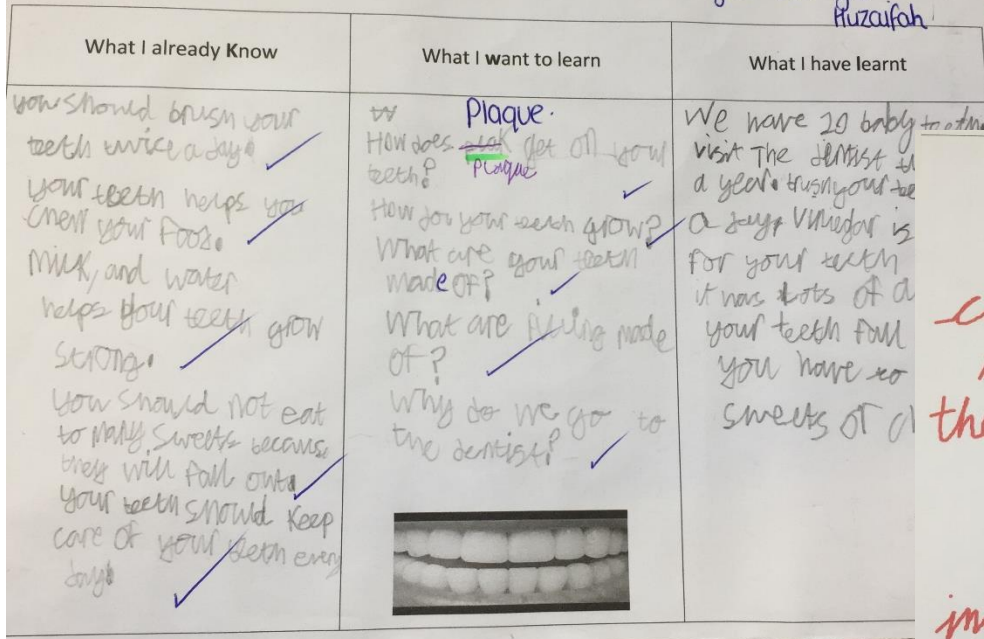 Huzaifah
What I already Know
you should brush your
teeth twice a day.
your teeth helps you
chew your food.
Milk, and water
helps your teeth grow
strong.
You should not eat
to many sweets because
they will fall out.
your teeth should keep
care of your teeth every
day.
What I want to learn
Plaque.
How does get on your
teeth? Plaque
How do your teeth grow?
What are your teeth
made of?
What are filling made
of?
Why do we go to
the dentist?
What I have learnt
We have 20 baby teeth
visit The dentist
a year. brush your
a day, Vinegar is
for your teeth
it has lots of
your teeth fall
you have to
sweets or